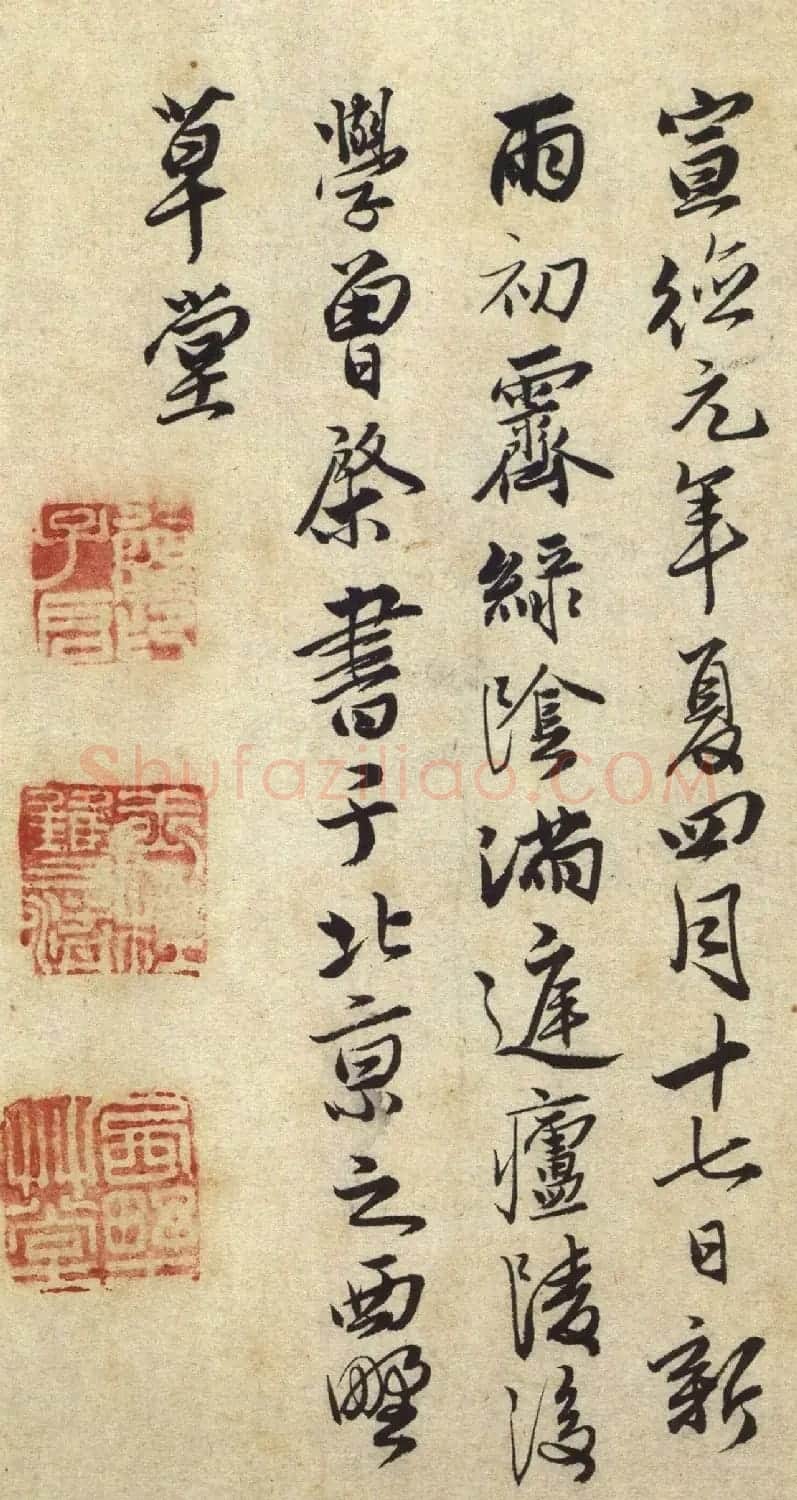 宣德元年夏四月十七日新
雨初霽綠陰滿庭廬陵後
學曾棨書于北京之西墅
草堂
西墅草堂
Shufaziliao.COM